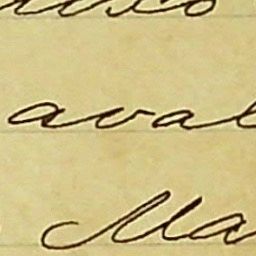 aval
Ma